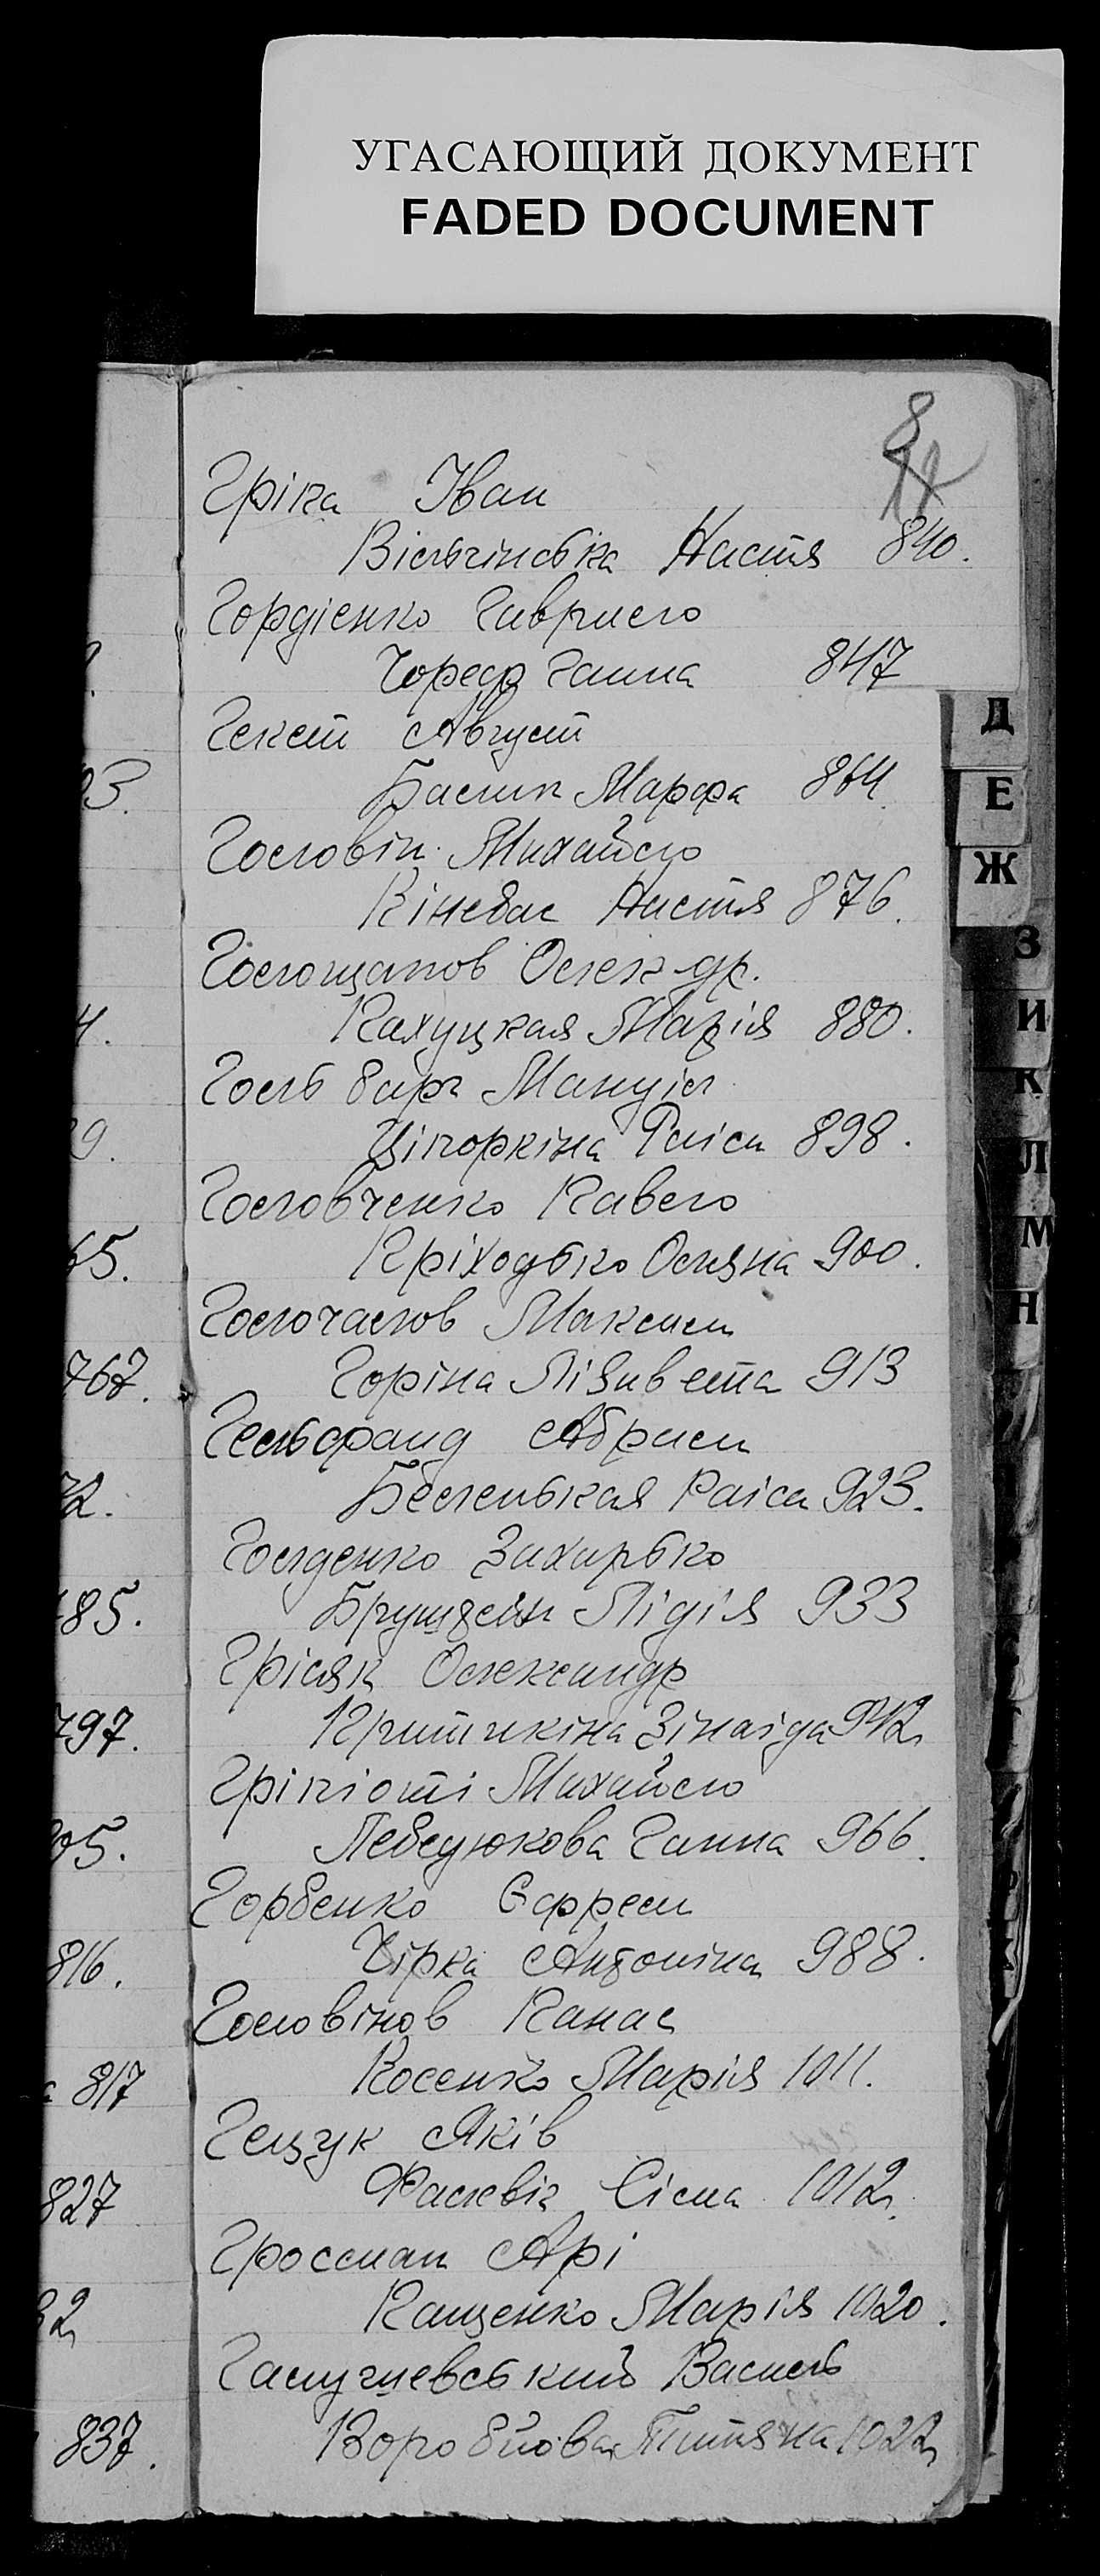 УГАСАЮЩИЙ ДОКУМЕНТ
FADED DOCUMENT
8
Гріка Іван
Вільчінська Настя 840.
Гордієнко Гаврило
Чореф Ганна 847
Гекст Август
Марфа 864.
Головін Михайло
Настя 876.
Голощапов Олек др.
Кахуцкая Марія 880.
Гольбарг Мануіл
Ціпоркіна Раіса 898.
Головченко Павело
Пріходько Оляна 900.
Голочалов Максим
Горіна Лізавета 913
Гельфанд Абрам
Беленькая Раіса 923.
Голденко Захарько
Лідія 933
Гріцяк Олександр
Зінаіда 942
Михайло
Лебедюкова Ганна 966.
Горбенко Єфрем
Чірка Антоніна 988.
Головінов Панас
Косенко Марія 1011.
Гещук Яків
Фалевіч Сіма 1012.
Гроссман Арі
Кащенко Марія 1020.
Василь
Воробйова Татяна 1022
Д
Е
Ж
З
И
К
Л
М
Н
03.
4.
9.
65.
767.
72.
785.
797.
05.
816.
а 817
827
32
837.